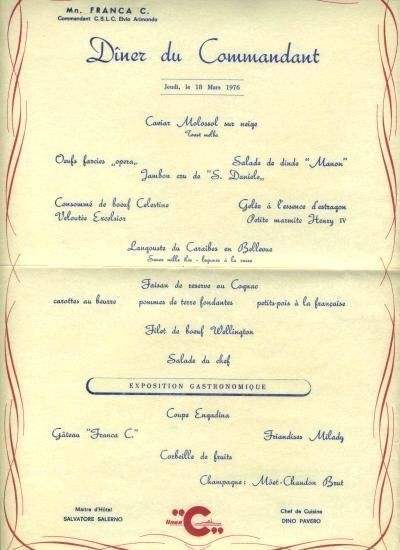 Mn. FRANCA C.
Commandant C.S.L.C. Elvio Arimondo
Dîner du Commandant
Jeudi, le 18 Mars 1976
Caviar Molossol sur neige
Toast melba
Oeufs farcies „opera„ Salade de dinde "Manon"
Jambon cru de "S. Daniele„
Consommé de boeuf Celestine Gelée à l'essence d'estragon
Veloutée Excelsior Petite marmite Henry IV
Langouste du Caraibes en Bellevue
Faisan de reserve au Cognac
carottes au beurre pommes de terre fondantes petits-pois à la française
Filet de boeuf Wellington
Salade du chef
EXPOSITION GASTRONOMIQUE
Coupe Engadina
Gâteau "Franca C." Friandises Milady
Corbeille de fruits
Champagne: Möet-Chandon Brut
Maitre d'Hôtel
SALVATORE SALERNO
"C"
linea
Chef de Cuisine
DINO PAVERO